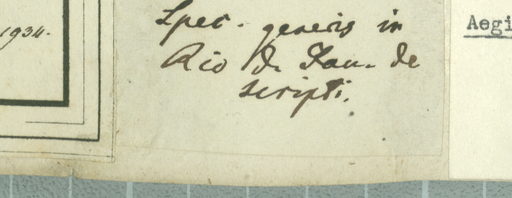 1934.
Spec. generis in
Rio d. Jan. de
scripti.
Aegi